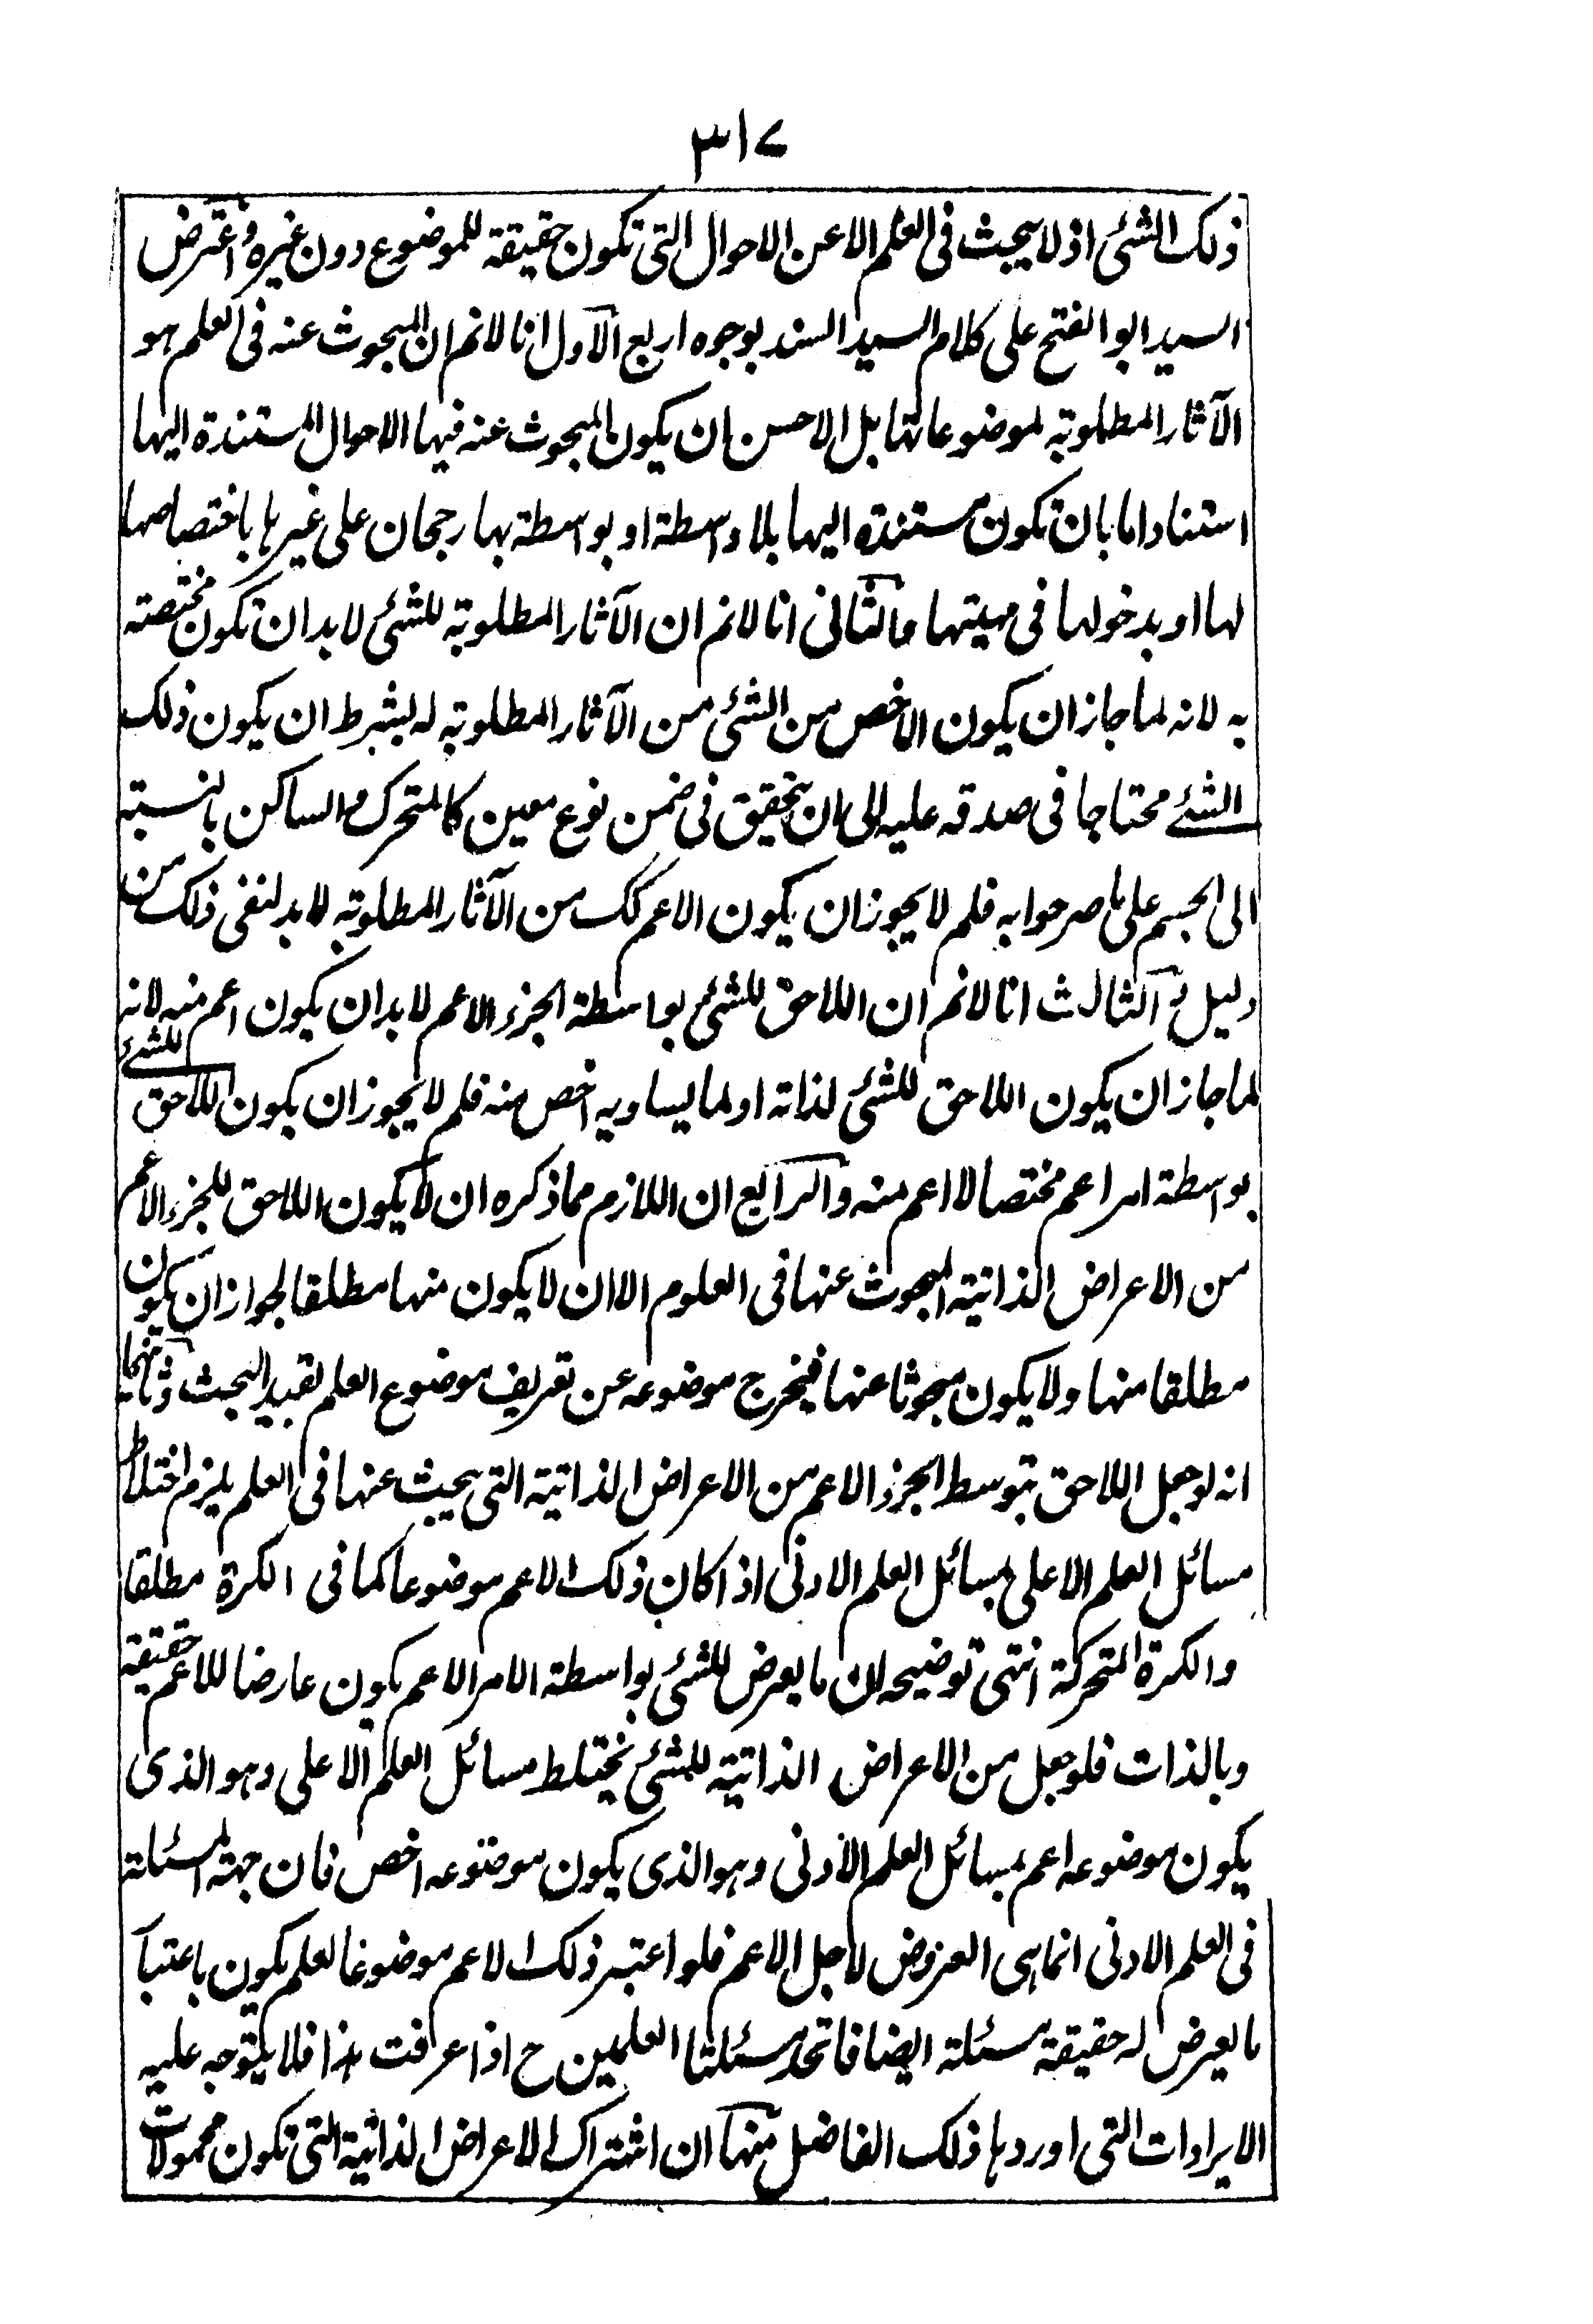 ٣١٧
ذلك الشئ اذ لا يبحث فى العلم الا عن الاحوال التى تكون حقيقة للموضوع دون غيره واعترض
السيد ابو الفتح على كلام السيد السند بوجوه اربع الاول انا لا نم ان المبحوث عنه فى العلم هو
الآثار المطلوبة لموضوعاتها بل الاحسن ان يكون المبحوث عنه فيها الاحوال المستندة اليها
استنادا ما بان تكون مستندة اليها بلا واسطة او بواسطة بها رجحان على غيرها باختصاصها
لها او بدخولها فى مهيتها والثانى انا لا نم ان الآثار المطلوبة للشئ لا بد ان تكون مختصة
به لانه لما جاز ان يكون الاخص من الشئ من الآثار المطلوبة له بشرط ان يكون ذلك
الشئ محتاجا فى صدقه عليه الى ان يتحقق فى ضمن نوع معين كالمتحرك والساكن بالنسبة
الى الجسم على ما صرحوا به فلم لا يجوز ان يكون الاعم كك من الآثار المطلوبة لا بد لنفى ذلك من
دليل والثالث انا لا نم ان اللاحق للشئ بواسطة الجزء الاعم لا بد ان يكون اعم منه لانه
لما جاز ان يكون اللاحق للشئ لذاته او لما يساويه اخص منه فلم لا يجوز ان يكون اللاحق للشئ
بواسطة امر اعم مختصا لا اعم منه والرابع ان اللازم مما ذكره ان لا يكون اللاحق للجزء الاعم
من الاعراض الذاتية المبحوث عنها فى العلوم الا ان لا يكون منها مطلقا لجواز ان يكون
مطلقا منها ولا يكون مبحوثا عنها فيخرج موضوعه عن تعريف موضوع العلم بقيد البحث وثانيهما
انه لو جعل اللاحق بتوسط الجزء الاعم من الاعراض الذاتية التى يبحث عنها فى العلم يلزم اختلاط
مسائل العلم الاعلى بمسائل العلم الادنى اذا كان ذلك الاعم موضوعا كما فى الكرة مطلقا
والكرة المتحركة انتهى توضيحه ان ما يعرض للشئ بواسطة الامر الاعم يكون عارضا للاعم حقيقة
وبالذات فلو جعل من الاعراض الذاتية للشئ يختلط مسائل العلم الاعلى وهو الذى
يكون موضوعه اعم بمسائل العلم الادنى وهو الذى يكون موضوعه اخص فان جهة المسئلة
فى العلم الادنى انما هى العروض لاجل الاعم فلو اعتبر ذلك الاعم موضوعا لعلم يكون باعتبار
ما يعرض له حقيقة مسئلة ايضا فاتحد مسئلتا العلمين ح اذا عرفت هذا فلا يتوجه عليه
الايرادات التى اوردها ذلك الفاضل منها ان اشتراك الاعراض الذاتية التى تكون محمولات